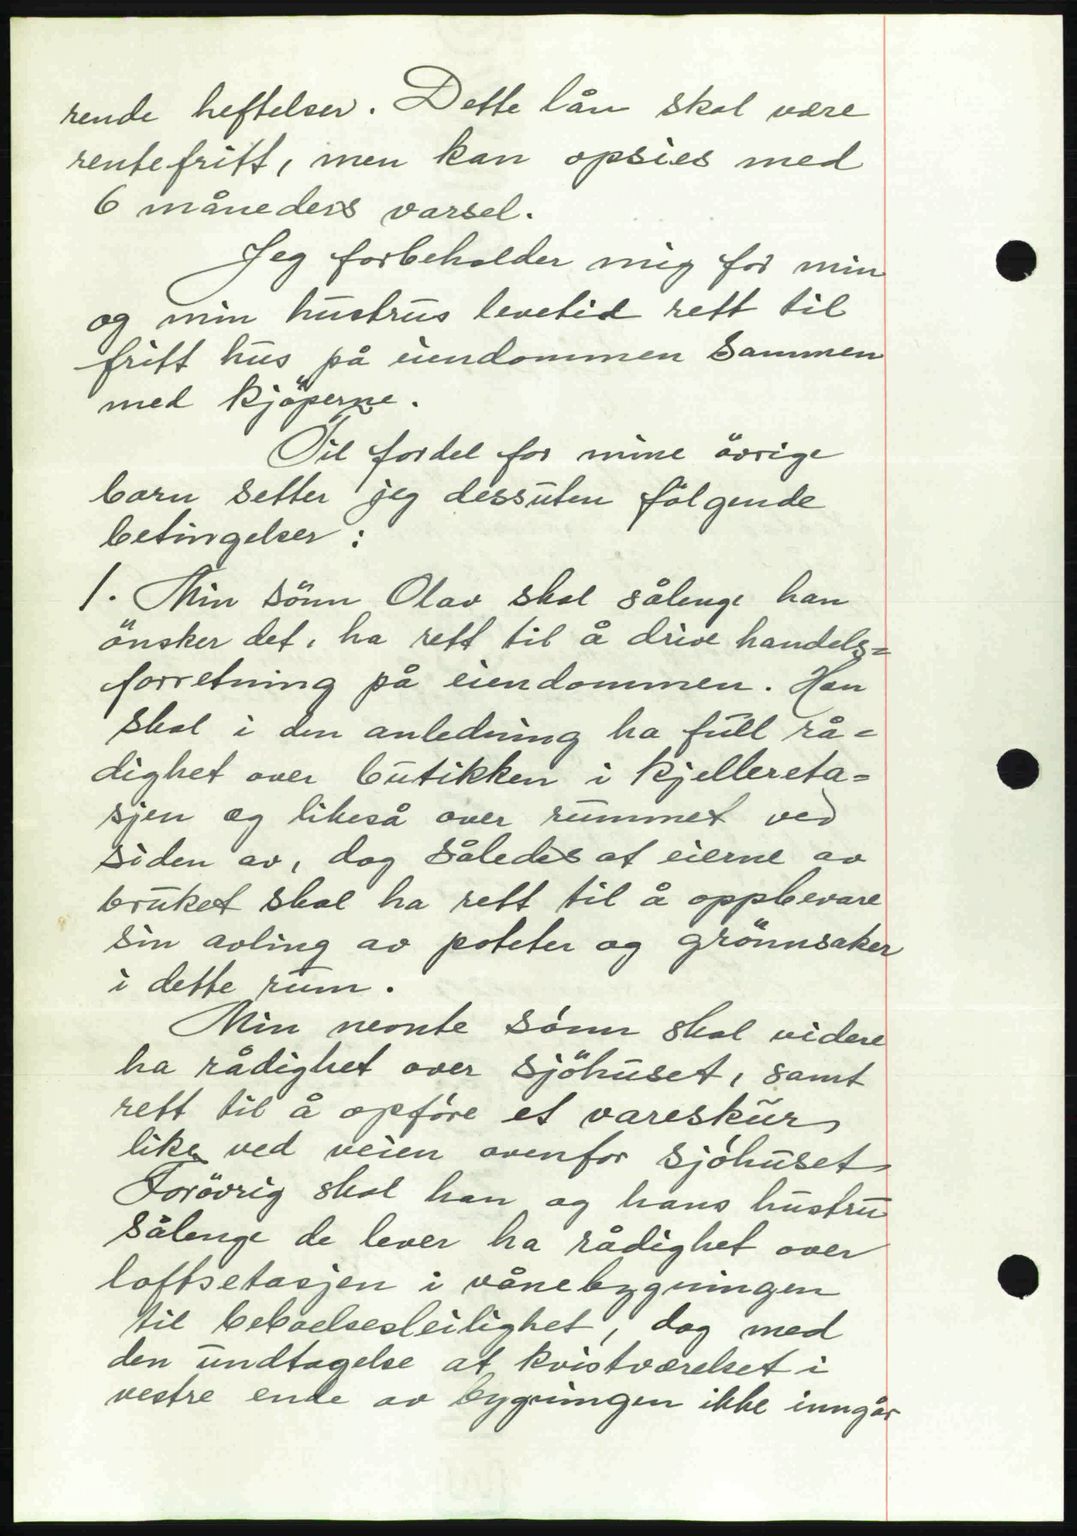 rende heftelser. Dette lån skal være
rentefritt, men kan opsies med
6 måneders varsel.
Jeg forbeholder mig for min
og min hustrus levetid rett til
fritt hus på eiendommen sammen
med kjöperne.
Til fordel for mine övrige
barn setter jeg dessuten fölgende
betingelser:
1. Min sönn Olav skal sålenge han
önsker det, ha rett til å drive handels=
forretning på eiendommen. Han
skal i den anledning ha full rå=
dighet over butikken i kjellereta=
sjen og likeså over rummet ved
siden av, dog således at eierne av
bruket skal ha rett til å oppbevare
sin avling av poteter og grönnsaker
i dette rum.
Min nevnte sónn skal videre
ha rådighet over sjöhuset, samt
rett til å opfóre et vareskur
like ved veien ovenfor sjóhuset.
Forövrig skal han og hans hustru
sålenge de lever ha rådighet over
loftsetasjen i vånebygningen
til beboelsesleilighet, dog med
den undtagelse at kvistværelset i
vestre ende av bygningen ikke inngår